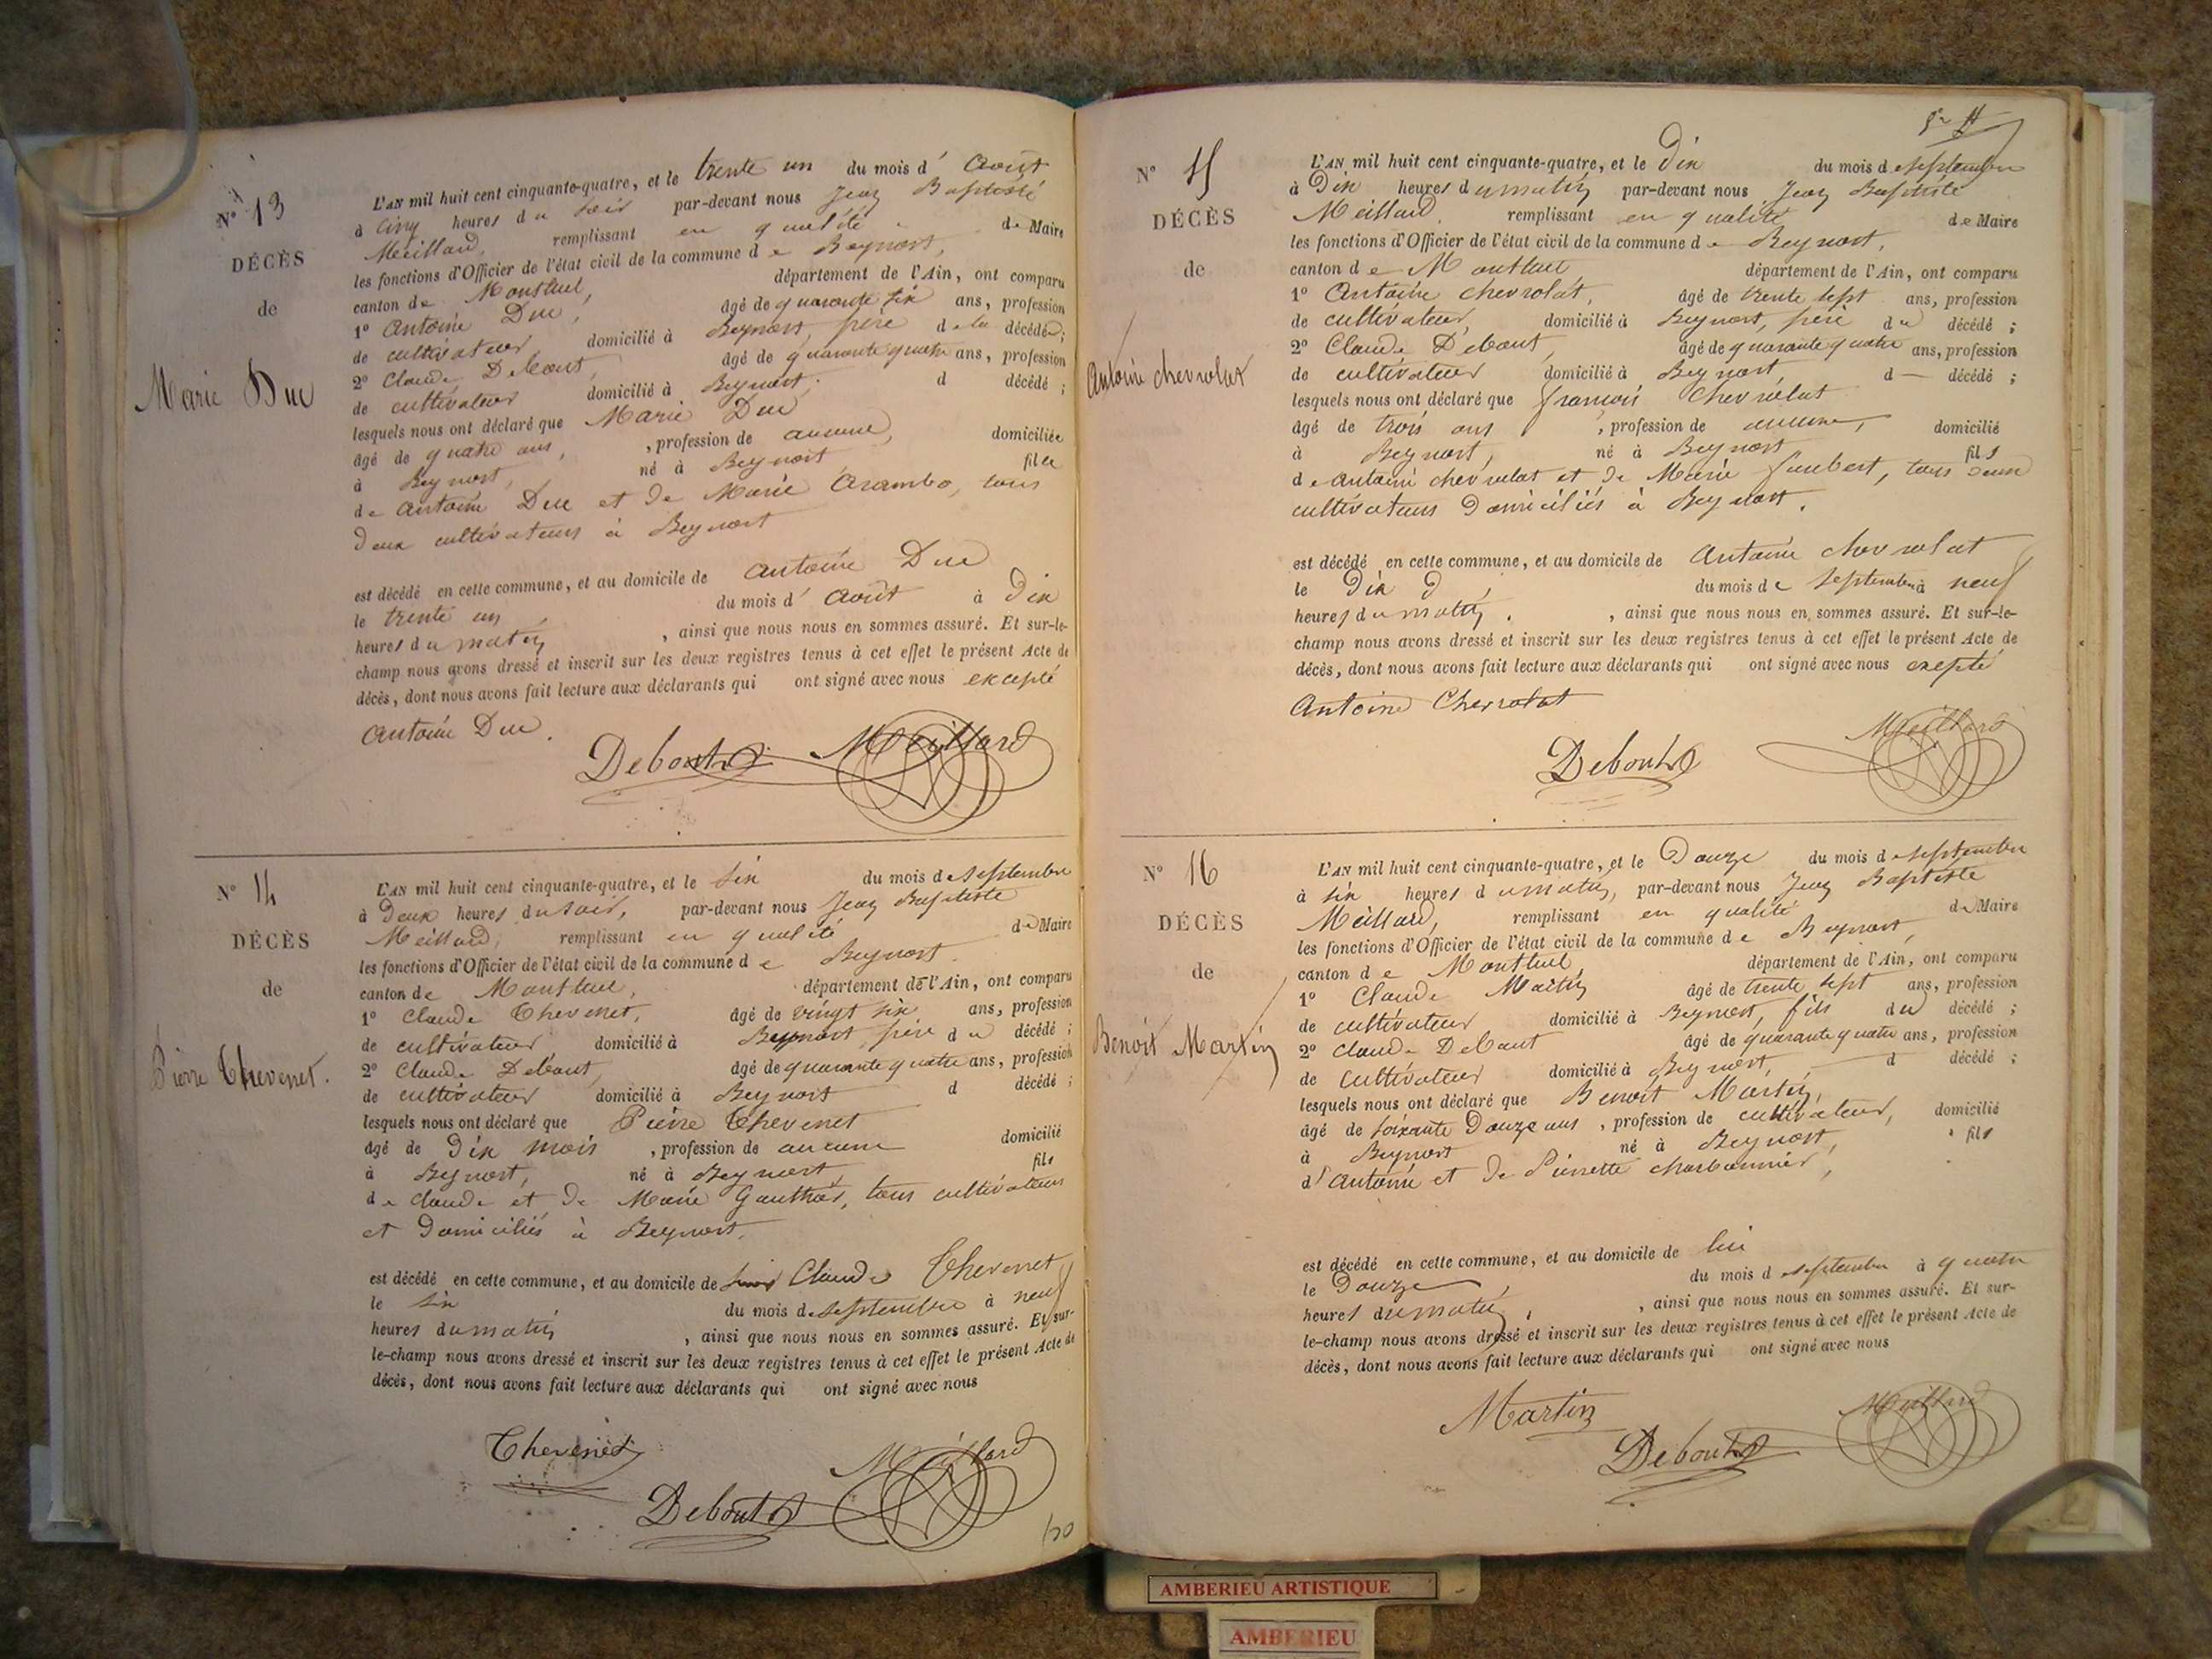 N° 13
DÉCÈS
de
Marie Duc
L'AN mil huit cent cinquante-quatre, et le trente un du mois d' Août
à cinq heures du soir par-devant nous Jean Baptiste
Meillard, remplissant en qualité de Maire
les fonctions d'Officier de l'état civil de la commune de Beynost,
canton de Montluel, département de l'Ain, ont comparu
1° Antoine Duc, âgé de quarante six ans, profession
de cultivateur domicilié à Beynost, père de la décédée;
2° Claude Debout, âgé de quarante quatre ans, profession
de cultivateur domicilié à Beynost, d décédé ;
lesquels nous ont déclaré que Marie Duc
âgé de quatre ans, , profession de aucune, domiciliée
à Beynost, né à Beynost fille
de Antoine Duc et de Marie Arambo, tous
deux cultivateurs à Beynost
est décédé en cette commune, et au domicile de Antoine Duc
le trente un du mois d' Août à dix
heures du matin , ainsi que nous nous en sommes assuré. Et sur-le-
champ nous avons dressé et inscrit sur les deux registres tenus à cet effet le présent Acte de
décès, dont nous avons fait lecture aux déclarants qui ont signé avec nous excepté
Antoine Duc.
Debout Meillard
N° 14
DÉCÈS
de
Pierre Thevenet.
L'AN mil huit cent cinquante-quatre, et le six du mois de septembre
à Deux heures du soir, par-devant nous Jean Baptiste
Meillard, remplissant en qualité de Maire
les fonctions d'Officier de l'état civil de la commune de Beynost.
canton de Montluel, département de l'Ain, ont comparu
1° Claude Thevenet, âgé de vingt six ans, profession
de cultivateur domicilié à Beynost, père du décédé ;
2° Claude Debout, âgé de quarante quatre ans, profession
de cultivateur domicilié à Beynost d décédé ;
lesquels nous ont déclaré que Pierre Thevenet
âgé de Dix mois , profession de aucune domicilié
à Beynost, né à Beynost fils
de Claude et de Marie Gauthier, tous cultivateurs
et Domiciliés à Beynost.
est décédé en cette commune, et au domicile de Claude Thevenet
le six du mois de septembre à neuf
heures du matin , ainsi que nous nous en sommes assuré. Et sur-
le-champ nous avons dressé et inscrit sur les deux registres tenus à cet effet le présent Acte de
décès, dont nous avons fait lecture aux déclarants qui ont signé avec nous
Thevenet Meillard
Debout
120
N° 15
DÉCÈS
de
Antoine Chevrolat
L'AN mil huit cent cinquante-quatre, et le Dix du mois de septembre
à Dix heures du matin par-devant nous Jean Baptiste
Meillard, remplissant en qualité de Maire
les fonctions d'Officier de l'état civil de la commune de Beynost,
canton de Montluel, département de l'Ain, ont comparu
1° Antoine Chevrolat, âgé de trente sept ans, profession
de cultivateur, domicilié à Beynost, père du décédé ;
2° Claude Debout, âgé de quarante quatre ans, profession
de cultivateur domicilié à Beynost, d décédé ;
lesquels nous ont déclaré que françois Chevrolat
âgé de trois ans , profession de aucune, domicilié
à Beynost, né à Beynost fils
de Antoine Chevrolat et de Marie Jaubert, tous deux
cultivateurs domiciliés à Beynost.
est décédé en cette commune, et au domicile de Antoine Chevrolat
le Dix du mois de septembre à neuf
heures du matin. , ainsi que nous nous en sommes assuré. Et sur-le-
champ nous avons dressé et inscrit sur les deux registres tenus à cet effet le présent Acte de
décès, dont nous avons fait lecture aux déclarants qui ont signé avec nous excepté
Antoine Chevrolat
Debout Meillard
N° 16
DÉCÈS
de
Benoit Martin
L'AN mil huit cent cinquante-quatre, et le Douze du mois de septembre
à six heures du matin, par-devant nous Jean Baptiste
Meillard, remplissant en qualité de Maire
les fonctions d'Officier de l'état civil de la commune de Beynost,
canton de Montluel, département de l'Ain, ont comparu
1° Claude Martin âgé de trente sept ans, profession
de cultivateur domicilié à Beynost, fils du décédé ;
2° Claude Debout âgé de quarante quatre ans, profession
de cultivateur domicilié à Beynost, d décédé ;
lesquels nous ont déclaré que Benoit Martin,
âgé de soixante Douze ans , profession de cultivateur, domicilié
à Beynost né à Beynost, fils
d'Antoine et de Pierrette Charbonnier,
est décédé en cette commune, et au domicile de lui
le Douze du mois de septembre à quatre
heures du matin , ainsi que nous nous en sommes assuré. Et sur-
le-champ nous avons dressé et inscrit sur les deux registres tenus à cet effet le présent Acte de
décès, dont nous avons fait lecture aux déclarants qui ont signé avec nous
Martin Meillard
Debout
AMBERIEU ARTISTIQUE
AMBERIEU